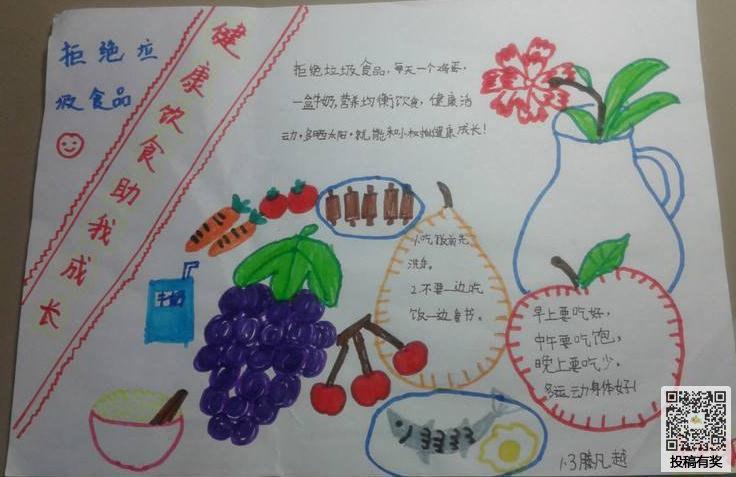 拒绝垃
圾食品
健康饮食助我成长
拒绝垃圾食品,每天一个鸡蛋,
一盒牛奶,营养均衡饮食,健康活
动,多晒太阳,就能和小松树健康成长!
1.吃饭前先
洗手。
2.不要一边吃
饭一边看书。
牛奶
早上要吃好,
中午要吃饱,
晚上要吃少,
多运动身体好!
1.3滕凡越
投稿有奖